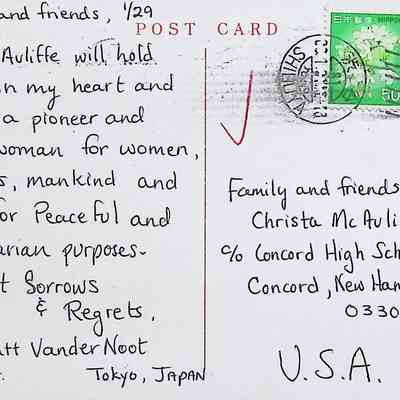 and friends, 1/29
Auliffe will hold
n my heart and
a pioneer and
woman for women,
s, mankind and
for Peaceful and
arian purposes.
t Sorrows
& Regrets,
tt VanderNoot
Tokyo, JAPAN
POST CARD
日本郵便 NIPPON
50
SHIBUYA
Family and friends
Christa McAuli
c/o Concord High Sch
Concord, New Ham
0330
U.S.A.